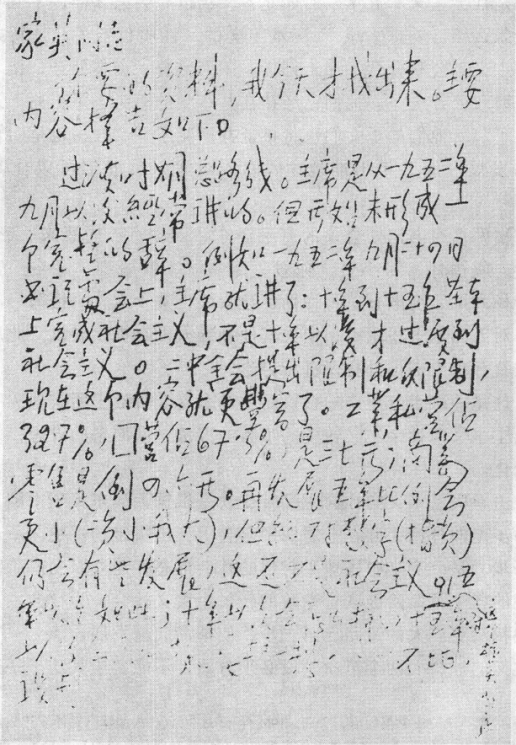 家英同志
你要的资料，我今天才找出来。主要
内容择告如下。
过渡时期总路线。主席是从一九五二年
九月以后经常讲的。但那时未形成一
个完整的 。例如一九五二年九月二十四日
书记处会上，主席就讲了：十年到十五年基本
上完成社会主义，不是十年以后才过渡到
社会主义。二中全会提出限制和反限制，
现在这个内容就更丰富了。工业，私营占
32.7%，国营占67.3%，是三七开；商业
零售是倒四六开。再发展五年比例会
更小（资小我大），但绝对数字（指资）
仍会有些发展，这还不是社会主义。五
年以后如此，十年以后会 ，十五年
以后